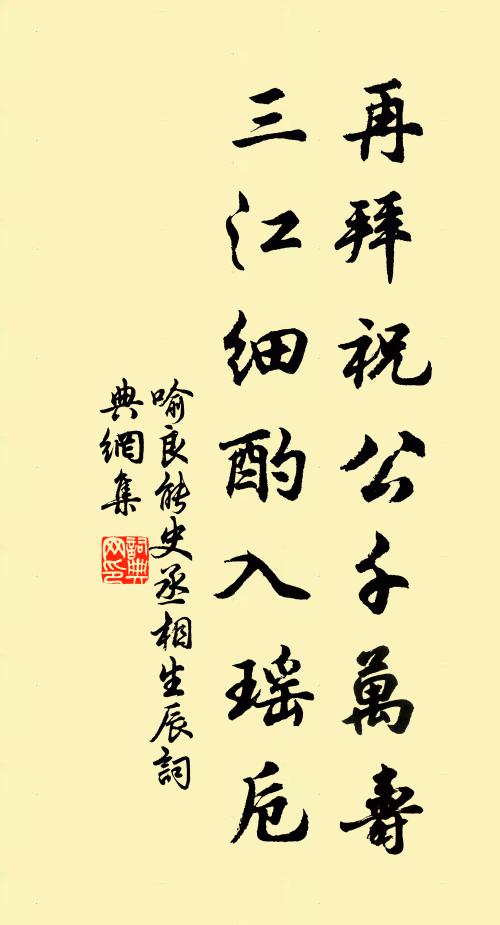 再拜祝公千萬壽
三江細酌入瑤卮
喻良能史丞相生辰詞
典網集
詞典網印